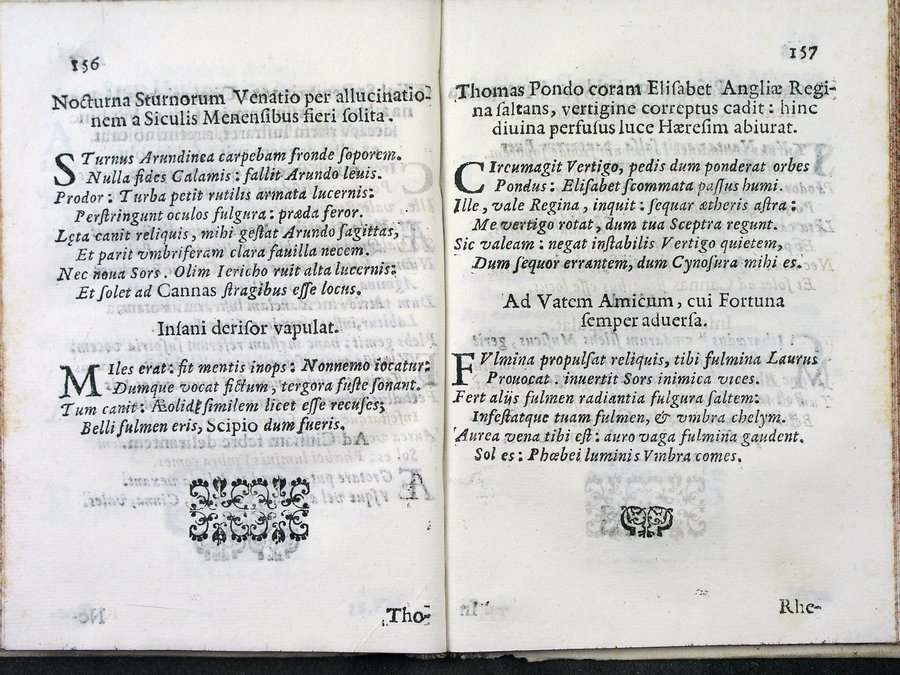 156
Nocturna Sturnorum Venatio per allucinatio-
nem a Siculis Menensibus fieri solita.
STurnus Arundinea carpebam fronde soporem.
Nulla fides Calamis: fallit Arundo leuis.
Prodor: Turba petit rutilis armata lucernis:
Perstringunt oculos fulgura: præda feror.
Læta canit reliquis, mihi gestat Arundo sagittas,
Et parit vmbriferam clara fauilla necem.
Nec noua Sors. Olim Iericho ruit alta lucernis:
Et solet ad Cannas stragibus esse locus.
Insani derisor vapulat.
MIles erat: fit mentis inops: Nonnemo iocatur:
Dumque vocat fictum, tergora fuste sonant.
Tum canit: Æolidę similem licet esse recuses;
Belli fulmen eris, Scipio dum fueris.
Tho-
157
Thomas Pondo coram Elisabet Angliæ Regi-
na saltans, vertigine correptus cadit: hinc
diuina perfusus luce Hæresim abiurat.
CIrcumagit Vertigo, pedis dum ponderat orbes
Pondus: Elisabet scommata passus humi.
Ille, vale Regina, inquit: sequar ætheris astra:
Me vertigo rotat, dum tua Sceptra regunt.
Sic valeam: negat instabilis Vertigo quietem,
Dum sequor errantem, dum Cynosura mihi es.
Ad Vatem Amicum, cui Fortuna
semper aduersa.
FVlmina propulsat reliquis, tibi fulmina Laurus
Prouocat: inuertit Sors inimica vices.
Fert alijs fulmen radiantia fulgura saltem:
Infestatque tuam fulmen, & vmbra chelym.
Aurea vena tibi est: auro vaga fulmina gaudent.
Sol es: Phœbei luminis Vmbra comes.
Rhe-